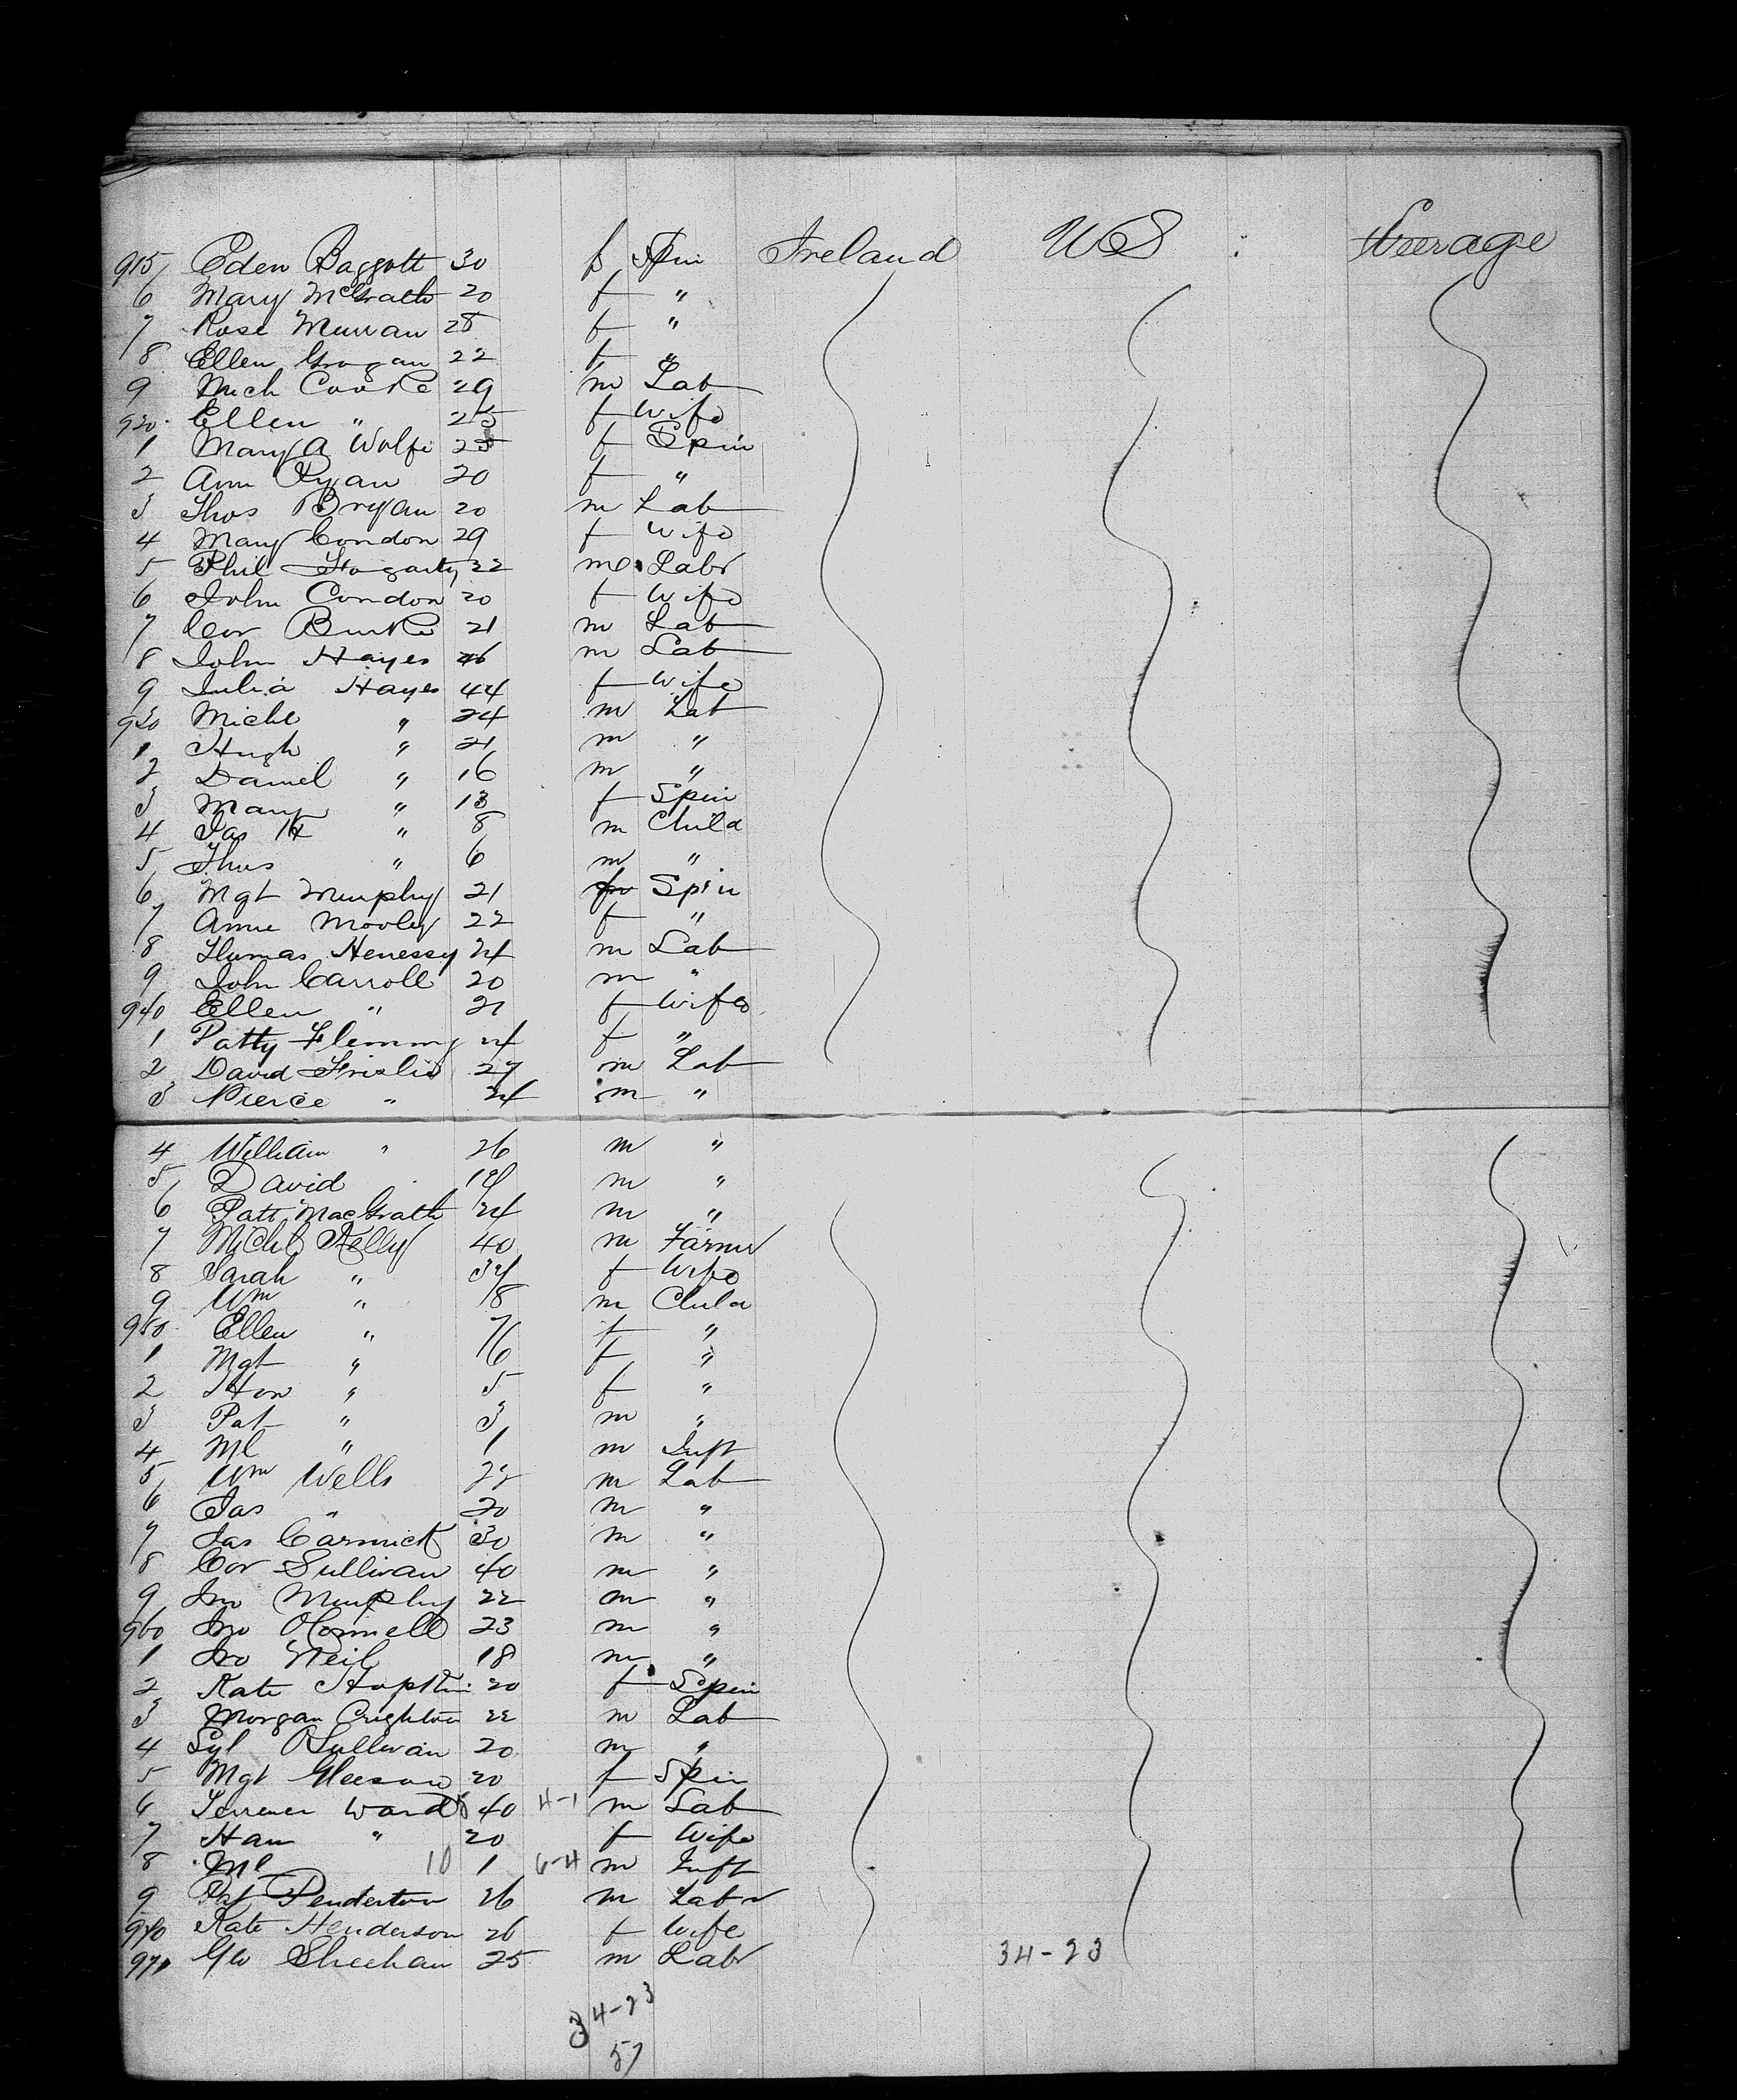 915 Eden Baggott 30 f Spin Ireland US Steerage
6 Mary McGrath 20 f "
7 Rose Murran 28 f "
8 Ellen Grogan 22 f "
9 Mich Cooke 29 m Lab
920 Ellen " 25 f Wife
1 Mary A Wolfe 25 f Spin
2 Ann Ryan 20 f "
3 Thos Bryan 20 m Lab
4 Mary Condon 29 f Wife
5 Phil Fogarty 22 m Labr
6 John Condon 20 f Wife
7 Cor Burke 21 m Lab
8 John Hayes 46 m Lab
9 Julia Hayes 44 f Wife
930 Michl " 24 m Lab
1 Hugh " 21 m "
2 Daniel " 16 m "
3 Mary " 13 f Spin
4 Jas " 8 m Child
5 Thos " 6 m "
6 Mgt Murphy 21 f Spin
7 Anne Mooley 22 f "
8 Thomas Henessy 24 m Lab
9 John Carroll 20 m "
940 Ellen " 21 f Wife
1 Patty Flemmg 24 f "
2 David 27 m Lab
3 Pierce " 24 m "
4 William " 26 m "
5 David 19 m "
6 Patt MacGrath 24 m "
7 Michl Kelly 40 m Farmer
8 Sarah " 34 f Wife
9 Wm " 8 m Child
950 Ellen " 7 f "
1 Mgt " 6 f "
2 Hon " 5 f "
3 Pat " 3 m "
4 Ml " 1 m Inft
5 Wm Wells 22 m Lab
6 Jas " 20 m "
7 Jas Carmick 30 m "
8 Cor Sullivan 40 m "
9 Jno Murphy 22 m "
960 Jno OConnell 23 m "
1 Jno Neil 18 m "
2 Kate Hopkin 20 f Spin
3 Morgan Crighton 22 m Lab
4 Syl OSullivan 20 m "
5 Mgt Gleeson 20 f Spin
6 Terrence Ward 40 4-1 m Lab
7 Han " 20 f Wife
8 Ml 10 1 6-4 m Inft
9 Pat Penderton 26 m Labr
970 Kate Henderson 26 f Wife
971 Geo Sheehan 25 m Labr 34-23
34-23
57